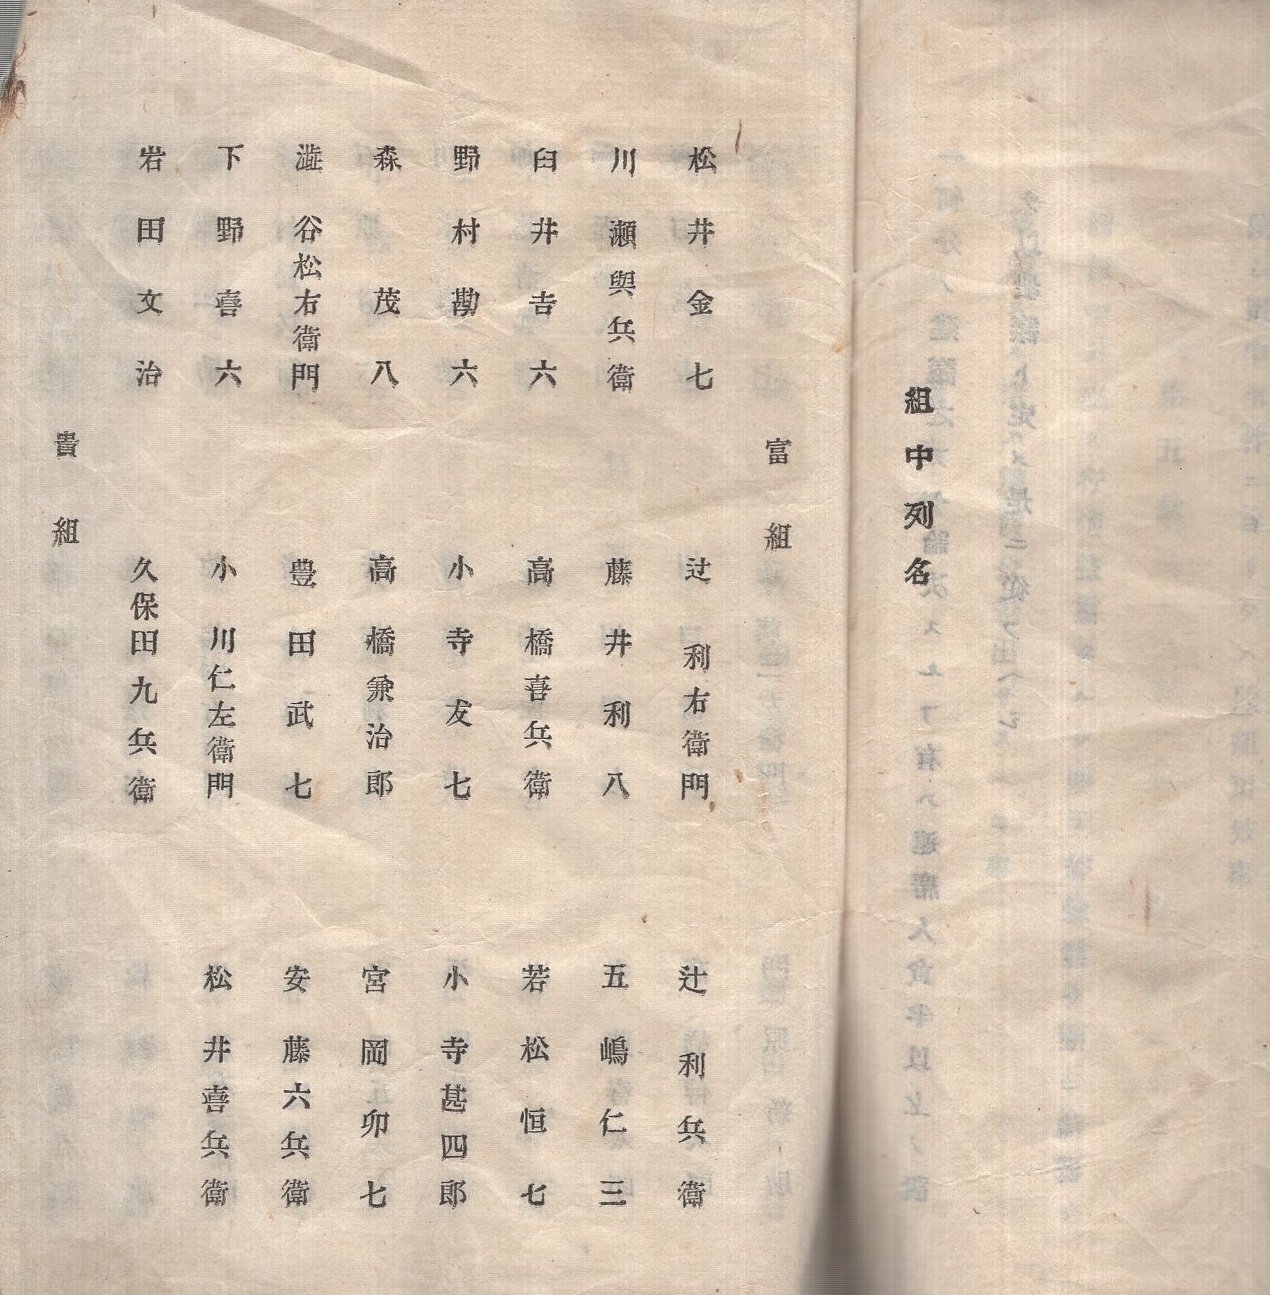 組中列名
富組
松井金七
辻利右衛門
辻利兵衛
川瀬與兵衛
藤井利八
五嶋仁三
臼井吉六
高橋喜兵衛
若松恒七
野村勘六
小寺友七
小寺甚四郎
森茂八
高橋兼治郎
宮岡卯七
澁谷松右衛門
豊田武七
安藤六兵衛
下野喜六
小川仁左衛門
松井喜兵衛
岩田文治
久保田九兵衛
貴組